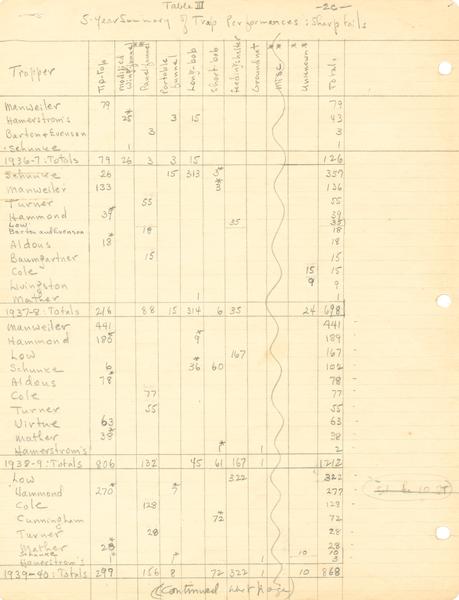 Table III -2c-
5-Year Summary of Trap Performances: Sharptails
Trapper Tip-Top modified Wing funnel Panel funnel Portable funnel Long-bob Short-bob Feeding shelter Groundnet Misc Unknown* Totals
Manweiler 79 79
Hamerstrom's 25* 3 15 43
Barton & Evenson 3 3
Schunke 1 1
1936-7: Totals 79 26 3 3 15 126
Schunke 26 15 313 3* 357
Manweiler 133 3* 136
Turner 55 55
Hammond 39* 39
Low 35 35
Barton and Evenson 18 18
Aldous 18* 18
Baumgartner 15 15
Cole 15 15
Livingston 9 9
Mather 1 1
1937-8: Totals 216 88 15 314 6 35 24 698
Manweiler 441 441
Hammond 180* 9* 189
Low 167 167
Schunke 6 36* 60 102
Aldous 78* 78
Cole 77 77
Turner 55 55
Virtue 63 63
Mather 38* 38
Hamerstrom's 1* 1 2
1938-9: Totals 806 132 45 61 167 1 1212
Low 322 322
Hammond 270* 7* 277
Cole 128 128
Cunningham 72* 72
Turner 28 28
Mather 28* 28
Schunke 10 10
Hamerstrom's 1 3
1939-40: Totals 299 156 8 72 322 1 10 868
(Continued next page)